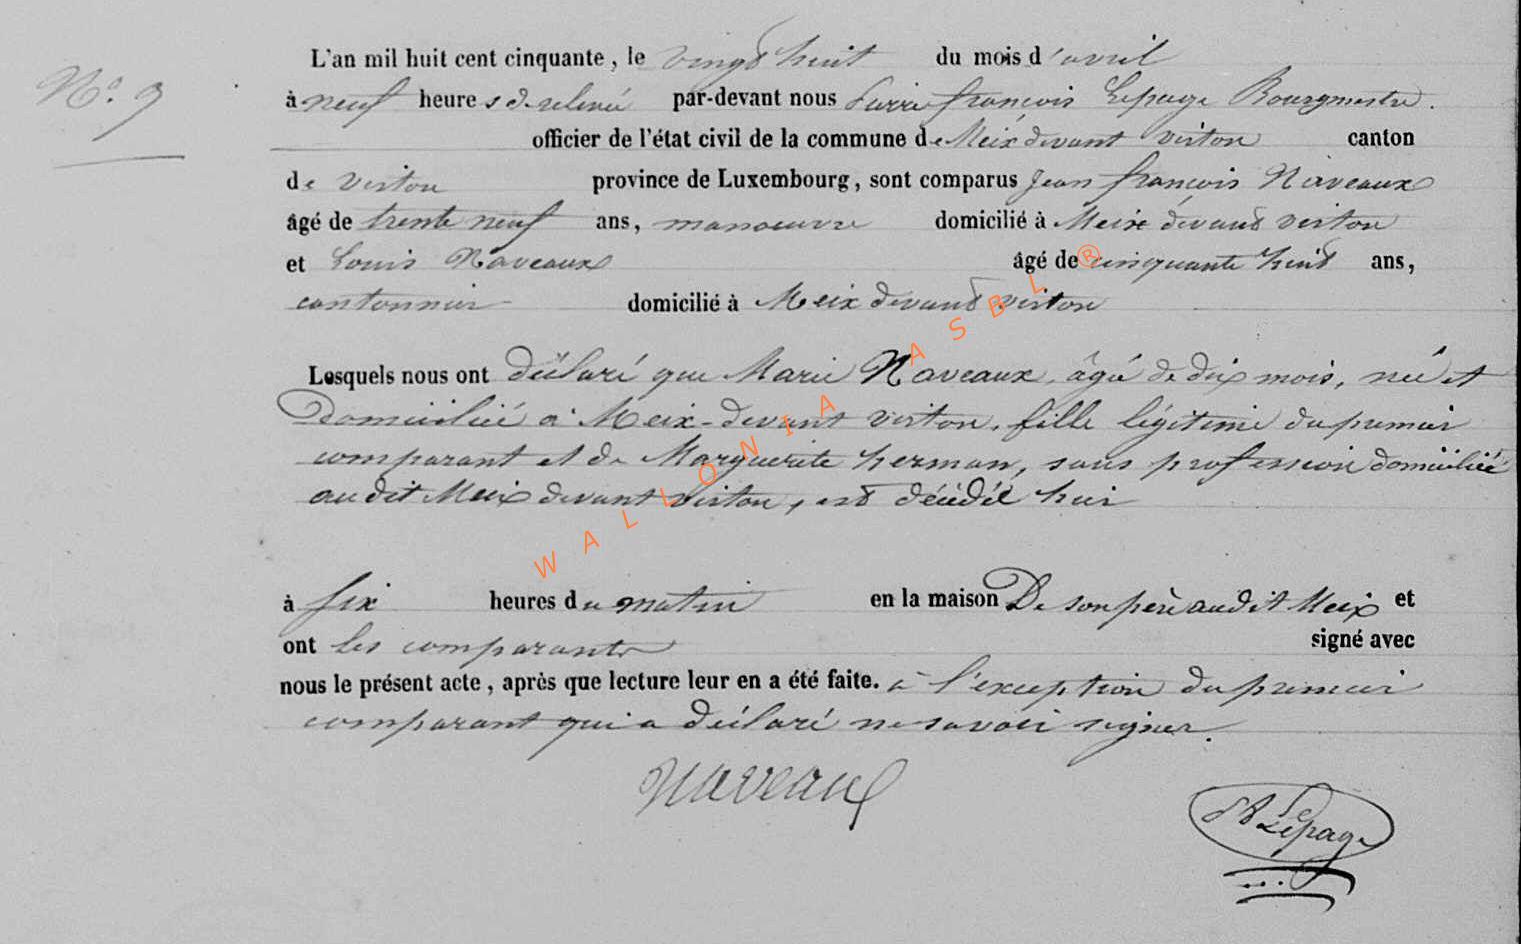 N° 9
L'an mil huit cent cinquante, le vingt huit du mois d'avril
à neuf heures de relevée par-devant nous Pierre françois Lepage Bourgmestre.
officier de l'état civil de la commune de Meix devant virton canton
de virton province de Luxembourg, sont comparus Jean françois Naveaux
âgé de trente neuf ans, manoeuvre domicilié à Meix devant virton
et Louis Naveaux âgé de cinquante huit ans,
cantonnier domicilié à Meix devant virton
Lesquels nous ont déclaré que Marie Naveaux, âgé de dix mois, née et
Domiciliée à Meix-devant virton, fille légitime du premier
comparant et de Marguerite herman, sans profession domiciliée
audit Meix devant virton, est décédée hier
à six heures du matin en la maison De son père audit Meix et
ont les comparants signé avec
nous le présent acte, après que lecture leur en a été faite. à l'exception du premier
comparant qui a déclaré ne savoir signer.
Naveaux
Lepage
WALLONIA ASBL ®